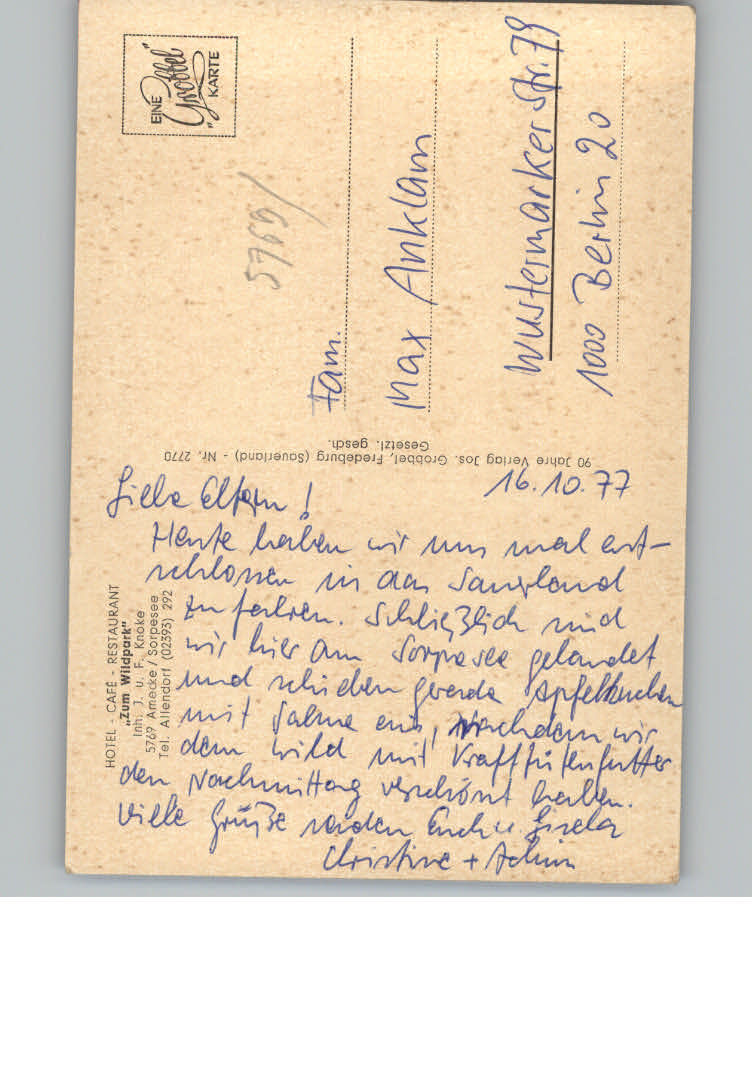 HOTEL - CAFÉ - RESTAURANT
„Zum Wildpark"
Inh. J. u. F. Knoke
5769 Amecke / Sorpesee
Tel. Allendorf (02393) 292
16.10.77
Liebe Eltern!
Heute haben wir uns mal ent-
schlossen in das Sauerland
zu fahren. Schließlich sind
wir hier am Sorpesee gelandet
und schieben gerade Apfelkuchen
mit Sahne ein, nachdem wir
dem Wild mit Kraftfutter
den Nachmittag verschönt haben.
Viele Grüße senden Euch u. Gisela
Christine + Achim
90 Jahre Verlag Jos. Grobbel, Fredeburg (Sauerland) - Nr. 2770
Gesetzl. gesch.
EINE
„Grobbel"
KARTE
5769/
Fam.
Max Anklam
Wustermarker Str. 79
1000 Berlin 20